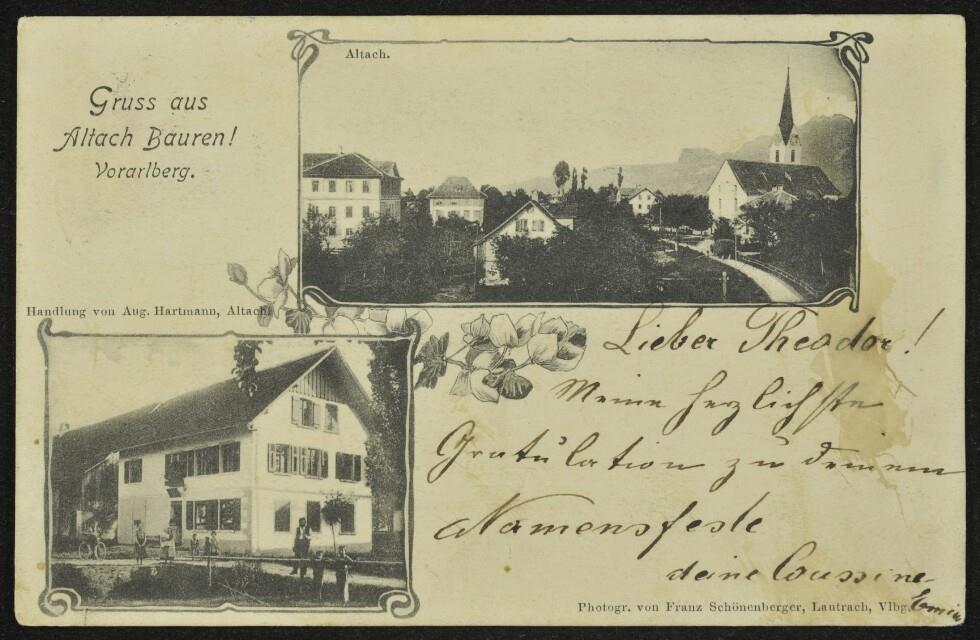 Gruss aus
Altach Bauren!
Vorarlberg.
Altach.
Handlung von Aug. Hartmann, Altach.
Lieber Theodor!
Meine herzlichste
Gratulation zu deinem
Namensfeste
deine Coussine
Photogr. von Franz Schönenberger, Lautrach, Vlbg.